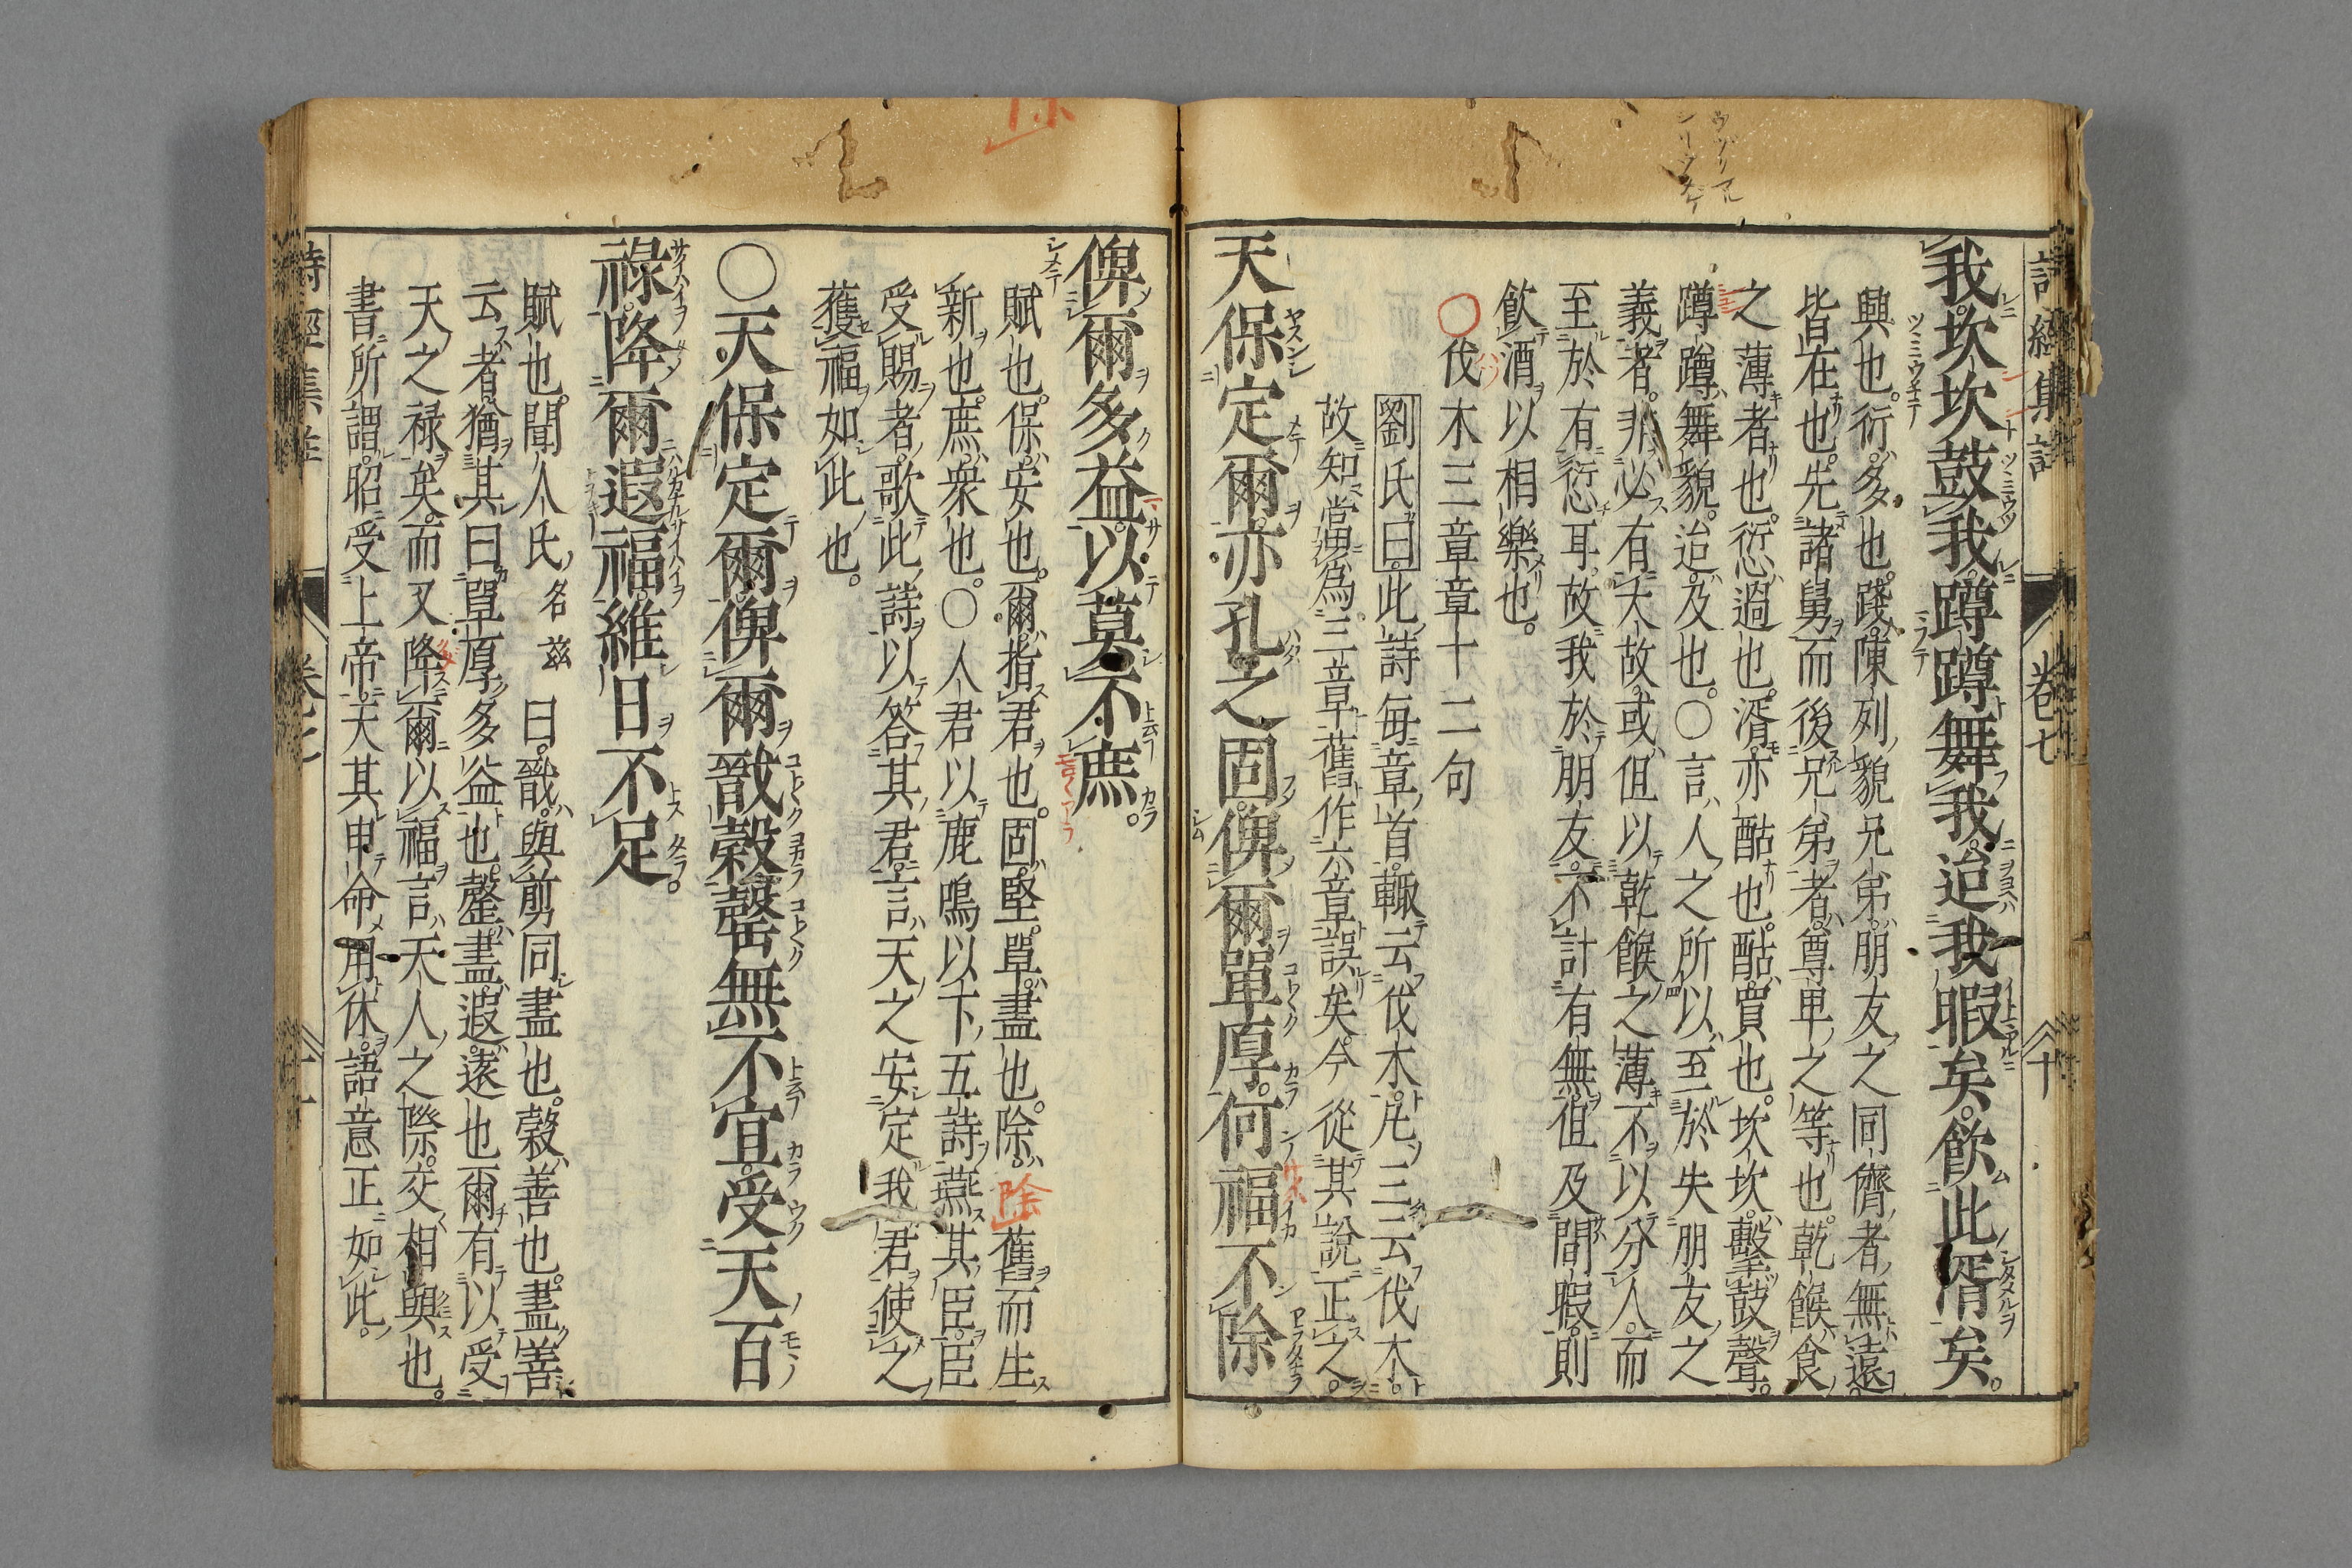 詩經集註 卷七 十
我坎坎鼓我蹲蹲舞我迨我暇矣飮此湑矣
興也衍多也踐陳列貌兄弟朋友之同儕者無遠
皆在也先諸舅而後兄弟者尊卑之等也乾餱食
之薄者也愆過也湑亦酤也酤買也坎坎擊鼓聲
蹲蹲舞貌迨及也〇言人之所以至於失朋友之
義者非必有大故或但以乾餱之薄不以分人而
至於有愆耳故我於朋友不計有無但及間暇則
飮酒以相樂也
伐木三章章十二句
劉氏曰此詩每章首輙云伐木凡三云伐木
故知當爲三章舊作六章誤矣今從其說正之
天保定爾亦孔之固俾爾單厚何福不除
俾爾多益以莫不庶
賦也保安也爾指君也固堅單盡也除除舊而生
新也庶衆也〇人君以鹿鳴以下五詩燕其臣臣
受賜者歌此詩以答其君言天之安定我君使之
獲福如此也
〇天保定爾俾爾戩穀罄無不宜受天百
祿降爾遐福維日不足
賦也聞人氏名茲曰戩與剪同盡也穀善也盡善
云者猶其曰單厚多益也罄盡遐遠也爾有以受
天之祿矣而又降爾以福言天人之際交相與也
書所謂昭受上帝天其申命用休語意正如此